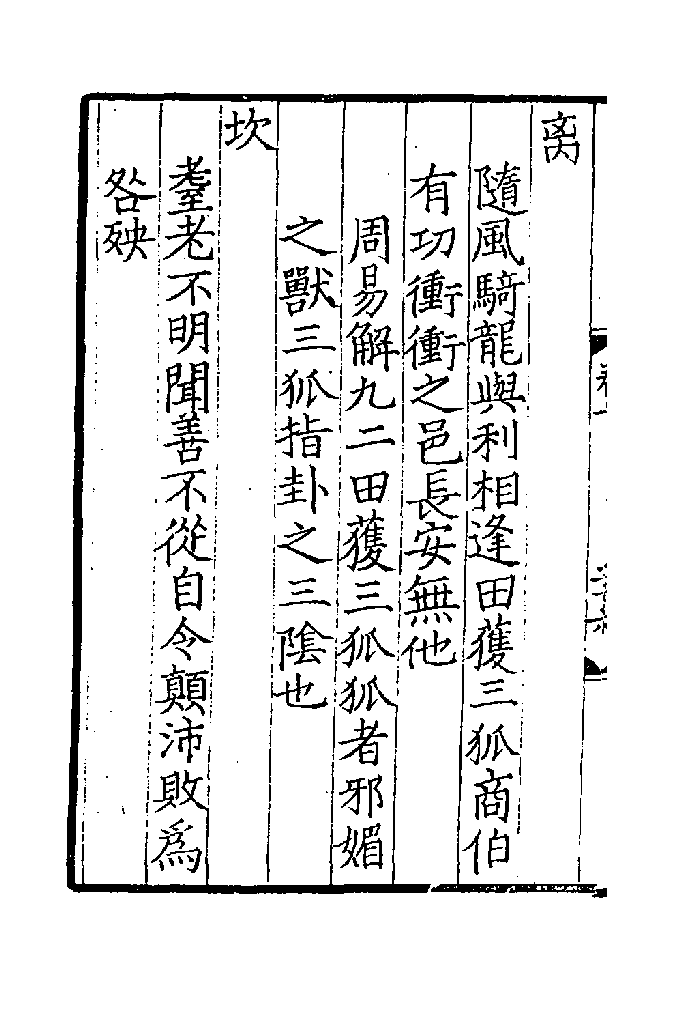 离
隨風騎龍與利相逢田獲三狐商伯
有功衝衝之邑長安無他
周易解九二田獲三狐狐者邪媚
之獸三狐指卦之三隂也
坎
耋老不明聞善不從自令顛沛敗為
咎殃